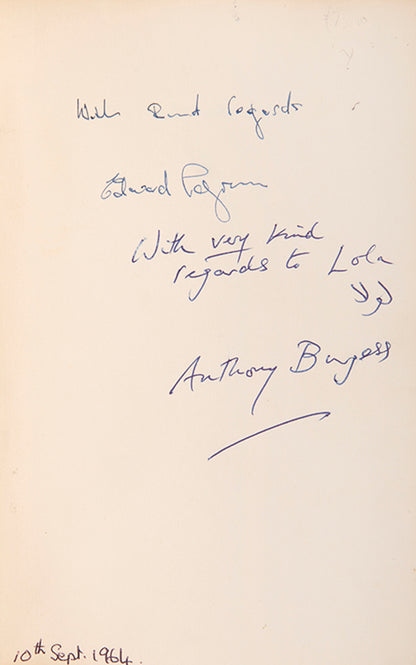 With kind regards
Edward Pagram
With very kind
regards to Lola
لولا
Anthony Burgess
10th Sept. 1964.